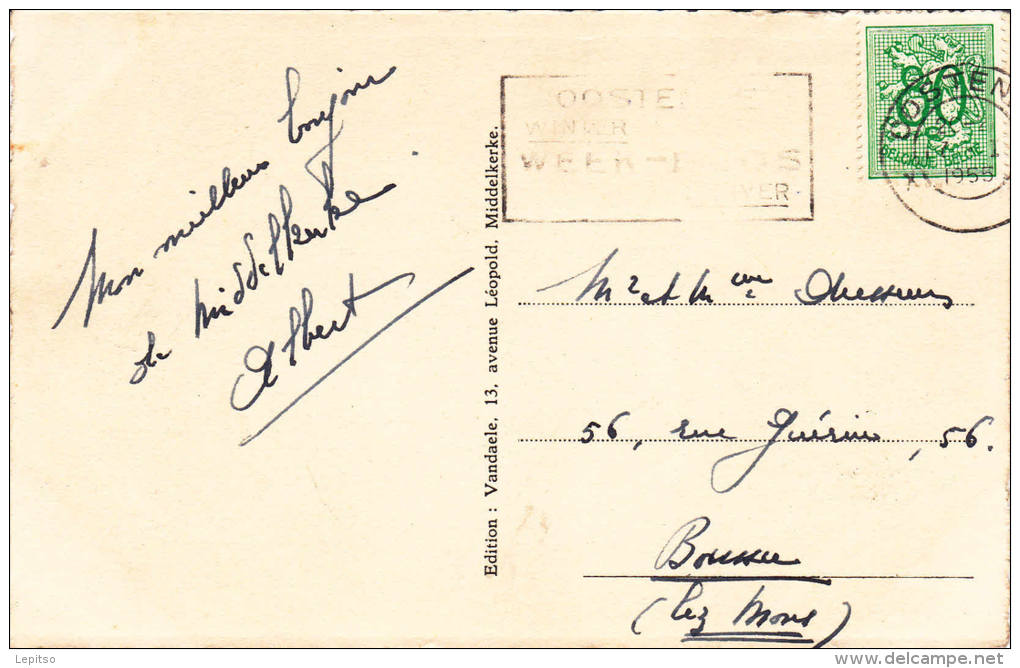 Mon meilleur bonjour
de Middelkerke
Albert
Edition : Vandaele, 13, avenue Léopold, Middelkerke.
OOSTE
WINTER
WEEK-
VER
60
BELGIQUE-BELGIE
OOSTEN
1955
Mr et Mme
56, rue Guérin, 56.
Boussu
(lez Mons)
Lepitso
www.delcampe.net